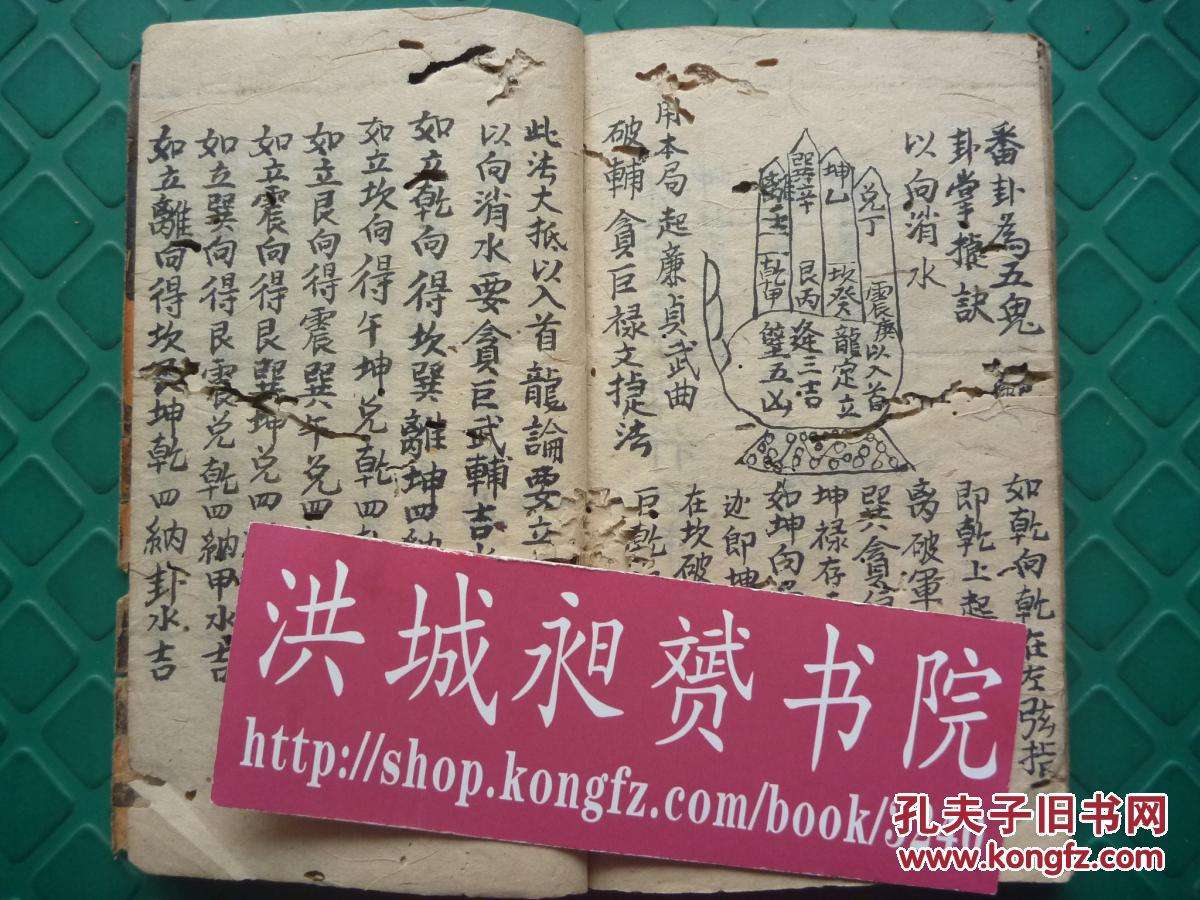 番卦為五鬼
卦掌 訣
以向消水
兌丁
坤乙
巽辛
離壬
震庚以入首
坎癸龍定立
艮丙逢三吉
乾甲
五凶
用本局起廉貞武曲
破輔貪巨祿文 法
如乾向乾在左弦指
即乾上起
离破軍
巽貪
坤禄存
如坤向
即坤
在坎破
巨乾
此法大抵以入首龍論要立
以向消水要貪巨武輔吉
如立乾向得坎巽離坤四納
如立坎向得午坤兌乾四
如立艮向得震巽午兌四
如立震向得艮巽坤兌四
如立巽向得艮震兌乾四納甲水吉
如立離向得坎 坤乾四納卦水吉
洪城昶赟书院
http://shop.kongfz.com/book/
孔夫子旧书网
www.kongfz.com